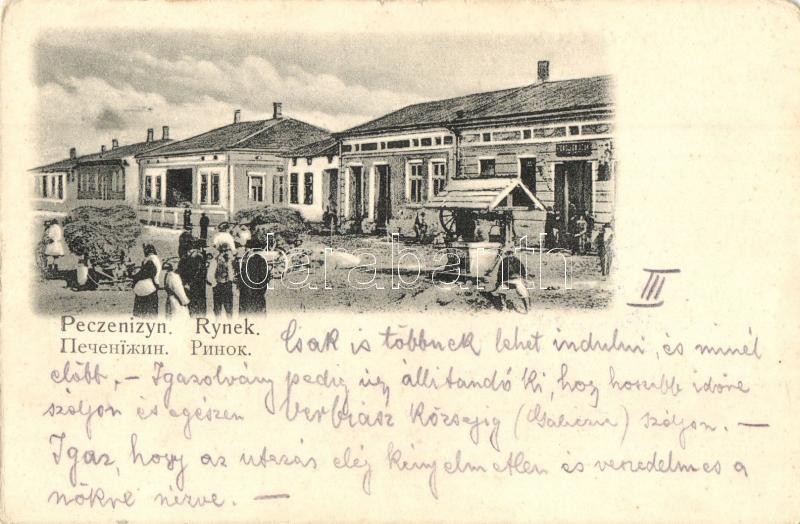 darabanth
III
Peczeniżyn. Rynek.
Печенїжин. Ринок.
Csak is többnek lehet indulni, és minél
előbb, – Igazolvány pedig úgy állitandó ki, hogy hosszabb időre
szóljon és egészen Verbiász községig (Galiczia) szóljon. –
Igaz, hogy az utazás elég kényelmetlen és veszedelmes a
nőkre nézve. –